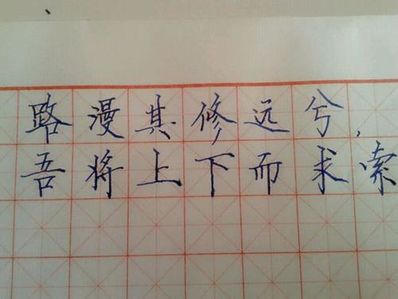 路漫其修远兮，
吾将上下而求索